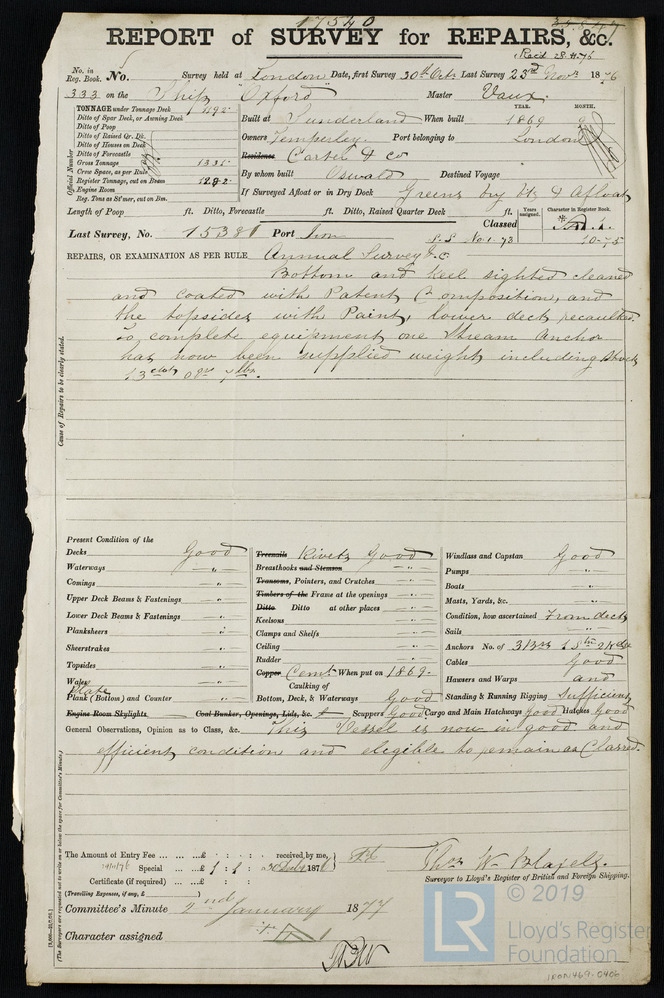 17540
REPORT of SURVEY for REPAIRS, &c.
Rec'd 28.11.76
No. in Reg. Book. No. Survey held at London Date, first Survey 30th Octr Last Survey 23rd Novr 1876
333 on the Ship "Oxford" Master Vaux.
TONNAGE under Tonnage Deck 1192
Ditto of Spar Deck, or Awning Deck
Ditto of Poop
Ditto of Raised Qr. Dk.
Ditto of Houses on Deck
Ditto of Forecastle
Gross Tonnage 1335
Crew Space, as per Rule
Register Tonnage, cut on Beam 1282
Engine Room
Reg. Tons as St'mer, cut on Bm.
Official Number
YEAR. MONTH.
Built at Sunderland When built 1869 9
Owners Temperley Port belonging to London
Residence Carter & Co
By whom built Oswald Destined Voyage
If Surveyed Afloat or in Dry Dock Greens dry dk & Afloat
Length of Poop ft. Ditto, Forecastle ft. Ditto, Raised Quarter Deck ft.
Years assigned. Character in Register Book.
Classed
Last Survey, No. 15381 Port Iron
S.S. No 1-73 10-75
REPAIRS, OR EXAMINATION AS PER RULE Annual Survey &c.
Bottom and keel sighted cleaned
and coated with Patent Composition, and
the topsides with Paint, lower deck recaulked.
To complete equipment one Stream Anchor
has now been supplied weight including Stock
13 cwt 0 qr 7 lbs.
Cause of Repairs to be clearly stated.
Present Condition of the
Decks Good
Waterways "
Comings "
Upper Deck Beams & Fastenings "
Lower Deck Beams & Fastenings "
Planksheers "
Sheerstrakes "
Topsides "
Wales "
Plate
Plank (Bottom) and Counter "
Engine Room Skylights
Treenails Rivets Good
Breasthooks and Stemson "
Transoms, Pointers, and Crutches "
Timbers of the Frame at the openings "
Ditto Ditto at other places "
Keelsons "
Clamps and Shelfs "
Ceiling "
Rudder "
Copper Cemt When put on 1869.
Caulking of
Bottom, Deck, & Waterways Good
Coal Bunker, Openings, Lids, &c. Scuppers Good
Windlass and Capstan Good
Pumps "
Boats "
Masts, Yards, &c. "
Condition, how ascertained From deck
Sails "
Anchors No. of 3 Brs 1 Stm 2 Kedge
Cables Good
Hawsers and Warps and
Standing & Running Rigging Sufficient
Cargo and Main Hatchways Good Hatches Good
General Observations, Opinion as to Class, &c. This Vessel is now in good and
efficient condition and eligible to remain as Classed.
The Amount of Entry Fee ... ... ...£ : : received by me,
Special ... ...£ 1 : 1 : 187
Certificate (if required) ... ...£ : :
(Travelling Expenses, if any, £ )
Surveyor to Lloyd's Register of British and Foreign Shipping.
Committee's Minute 2nd January 1877
Character assigned
(The Surveyors are requested not to write on or below the space for Committee's Minute.)
© 2019
LR
Lloyd's Register
Foundation
IRON469-0406